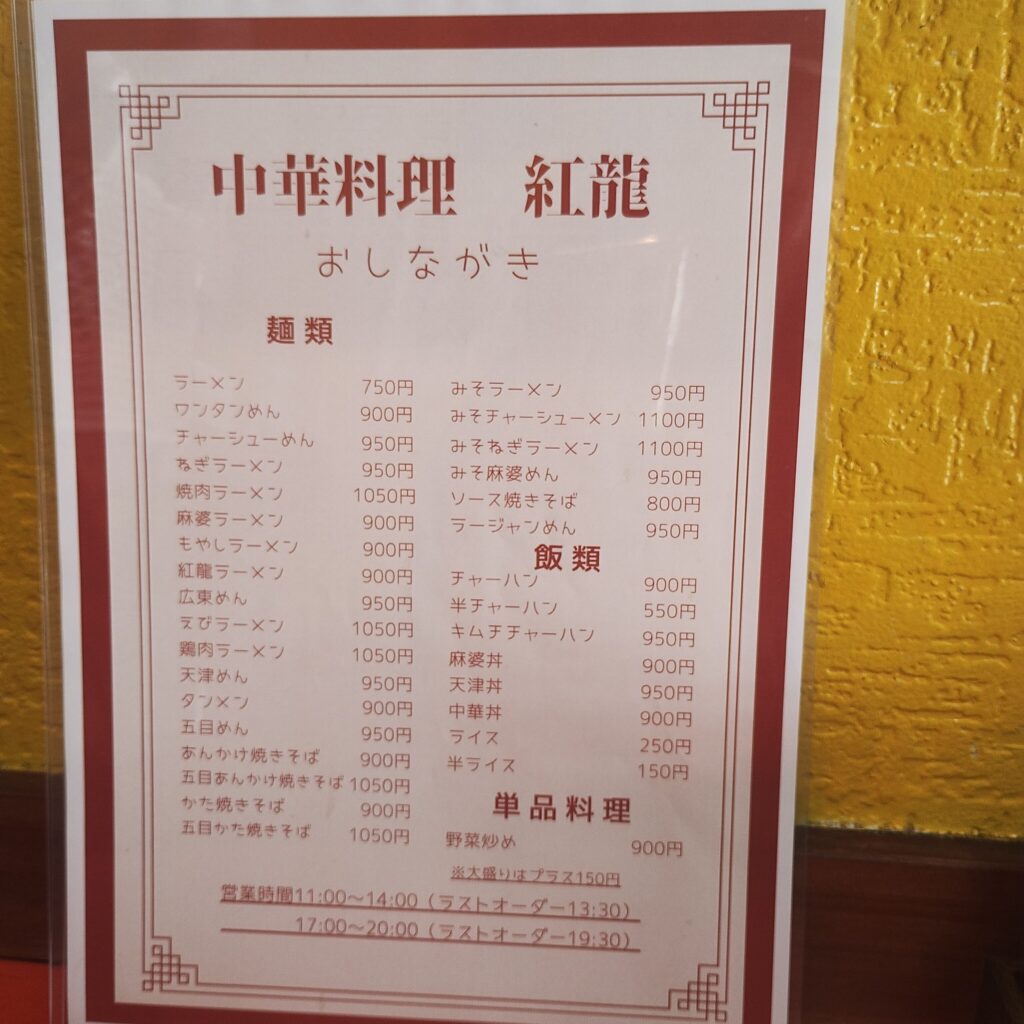 中華料理 紅龍
おしながき
麺類
ラーメン 750円
ワンタンめん 900円
チャーシューめん 950円
ねぎラーメン 950円
焼肉ラーメン 1050円
麻婆ラーメン 900円
もやしラーメン 900円
紅龍ラーメン 900円
広東めん 950円
えびラーメン 1050円
鶏肉ラーメン 1050円
天津めん 950円
タンメン 900円
五目めん 950円
あんかけ焼きそば 900円
五目あんかけ焼きそば 1050円
かた焼きそば 900円
五目かた焼きそば 1050円
みそラーメン 950円
みそチャーシューメン 1100円
みそねぎラーメン 1100円
みそ麻婆めん 950円
ソース焼きそば 800円
ラージャンめん 950円
飯類
チャーハン 900円
半チャーハン 550円
キムチチャーハン 950円
麻婆丼 900円
天津丼 950円
中華丼 900円
ライス 250円
半ライス 150円
単品料理
野菜炒め 900円
※大盛りはプラス150円
営業時間11:00～14:00（ラストオーダー13:30）
17:00～20:00（ラストオーダー19:30）